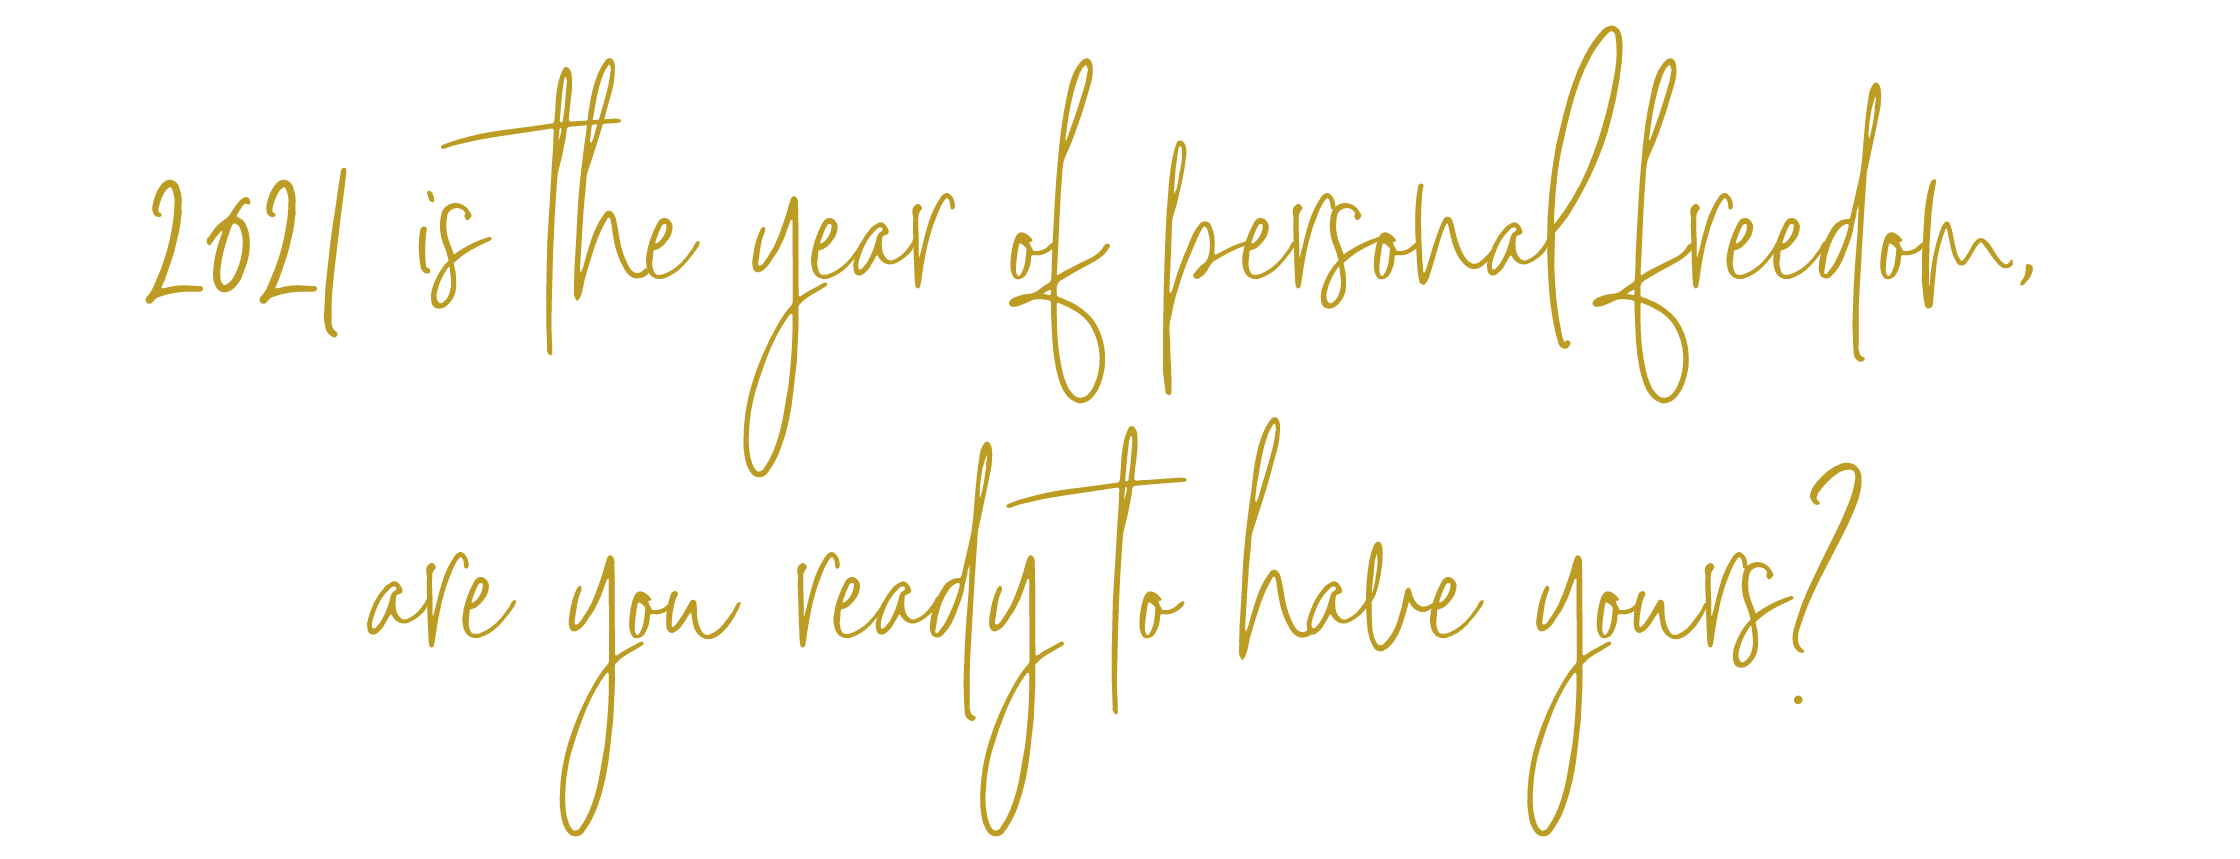 2021 is the year of personal freedom,
are you ready to have yours?